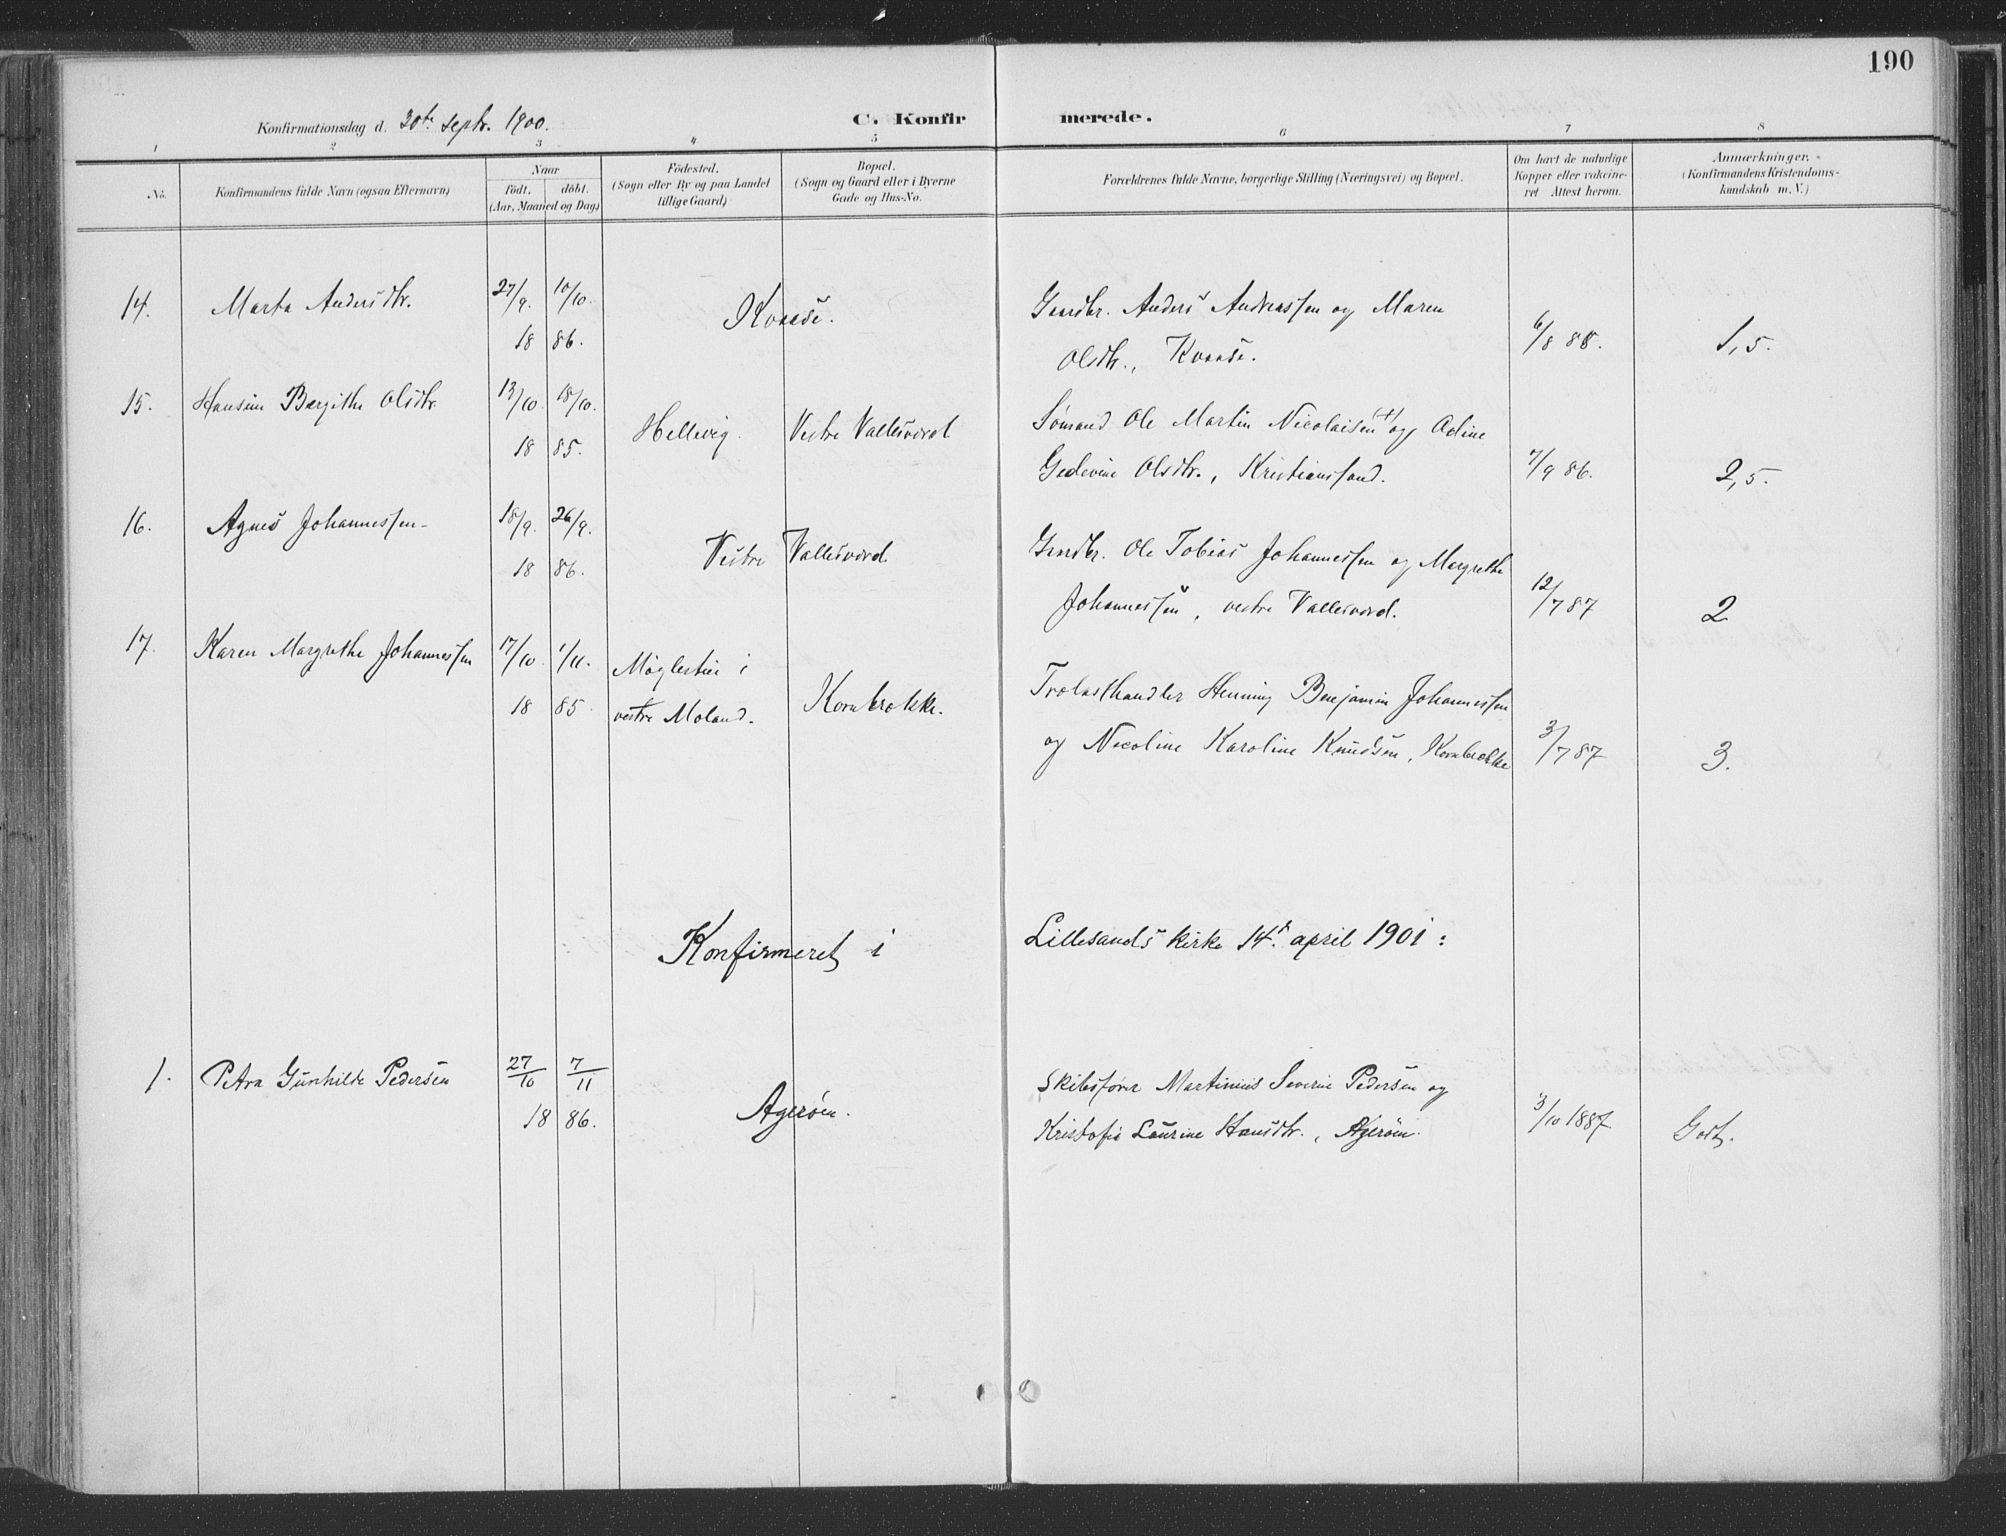 190
Konfirmationsdag d. 30te septr. 1900.
C. Konfirmerede.
1 2 3 4 5 6 7 8
No.
Konfirmandens fulde Navn (ogsaa Efternavn)
Naar
født. døbt.
(Aar, Maaned og Dag)
Födested.
(Sogn eller By og paa Landet
tillige Gaard)
Bopæl.
(Sogn og Gaard eller i Byerne
Gade og Hus-No.
Forældrenes fulde Navne, borgerlige Stilling (Næringsvei) og Bopæl.
Om havt de naturlige
Kopper eller vakcine-
ret Attest herom.
Anmærkninger.
(Konfirmandens Kristendoms-
kundskab m.V.)
14. Marta Andersdtr. 27/9. 10/10. Kvaase. Grndbr. Anders Andreassen og Maren
18 86. Olsdtr., Kvaase. 6/8 88. 1,5.
15. Hansine Bergithe Olsdtr. 13/10. 18/10. Hellevig. Vestre Vallesværd Sømand Ole Martin Nicolaisen (+) og Adine
18 85. Gedevine Olsdtr., Kristianssand. 7/9 86. 2,5.
16. Agnes Johannessen 18/9. 26/9. Vestre Vallesværd Grndbr. Ole Tobias Johannessen og Margrethe
18 86. Johannessen, vestre Vallesværd. 12/7 87 2
17. Karen Margrethe Johannessen 17/10. 1/11. Møglestue i
vestre Moland. Kornbrække. Trælasthandler Henning Benjamin Johannessen
18 85. og Nicoline Karoline Knudsen, Kornbrække 3/7 87 3.
Konfirmeret i Lillesands kirke 14de april 1901:
1. Petra Gunhilde Pedersen 27/10 7/11 Agerøen. Skibsfører Martinius Severin Pedersen og
18 86. Kristofie Laurine Hansdtr., Agerøen. 3/10 1887 Godt.